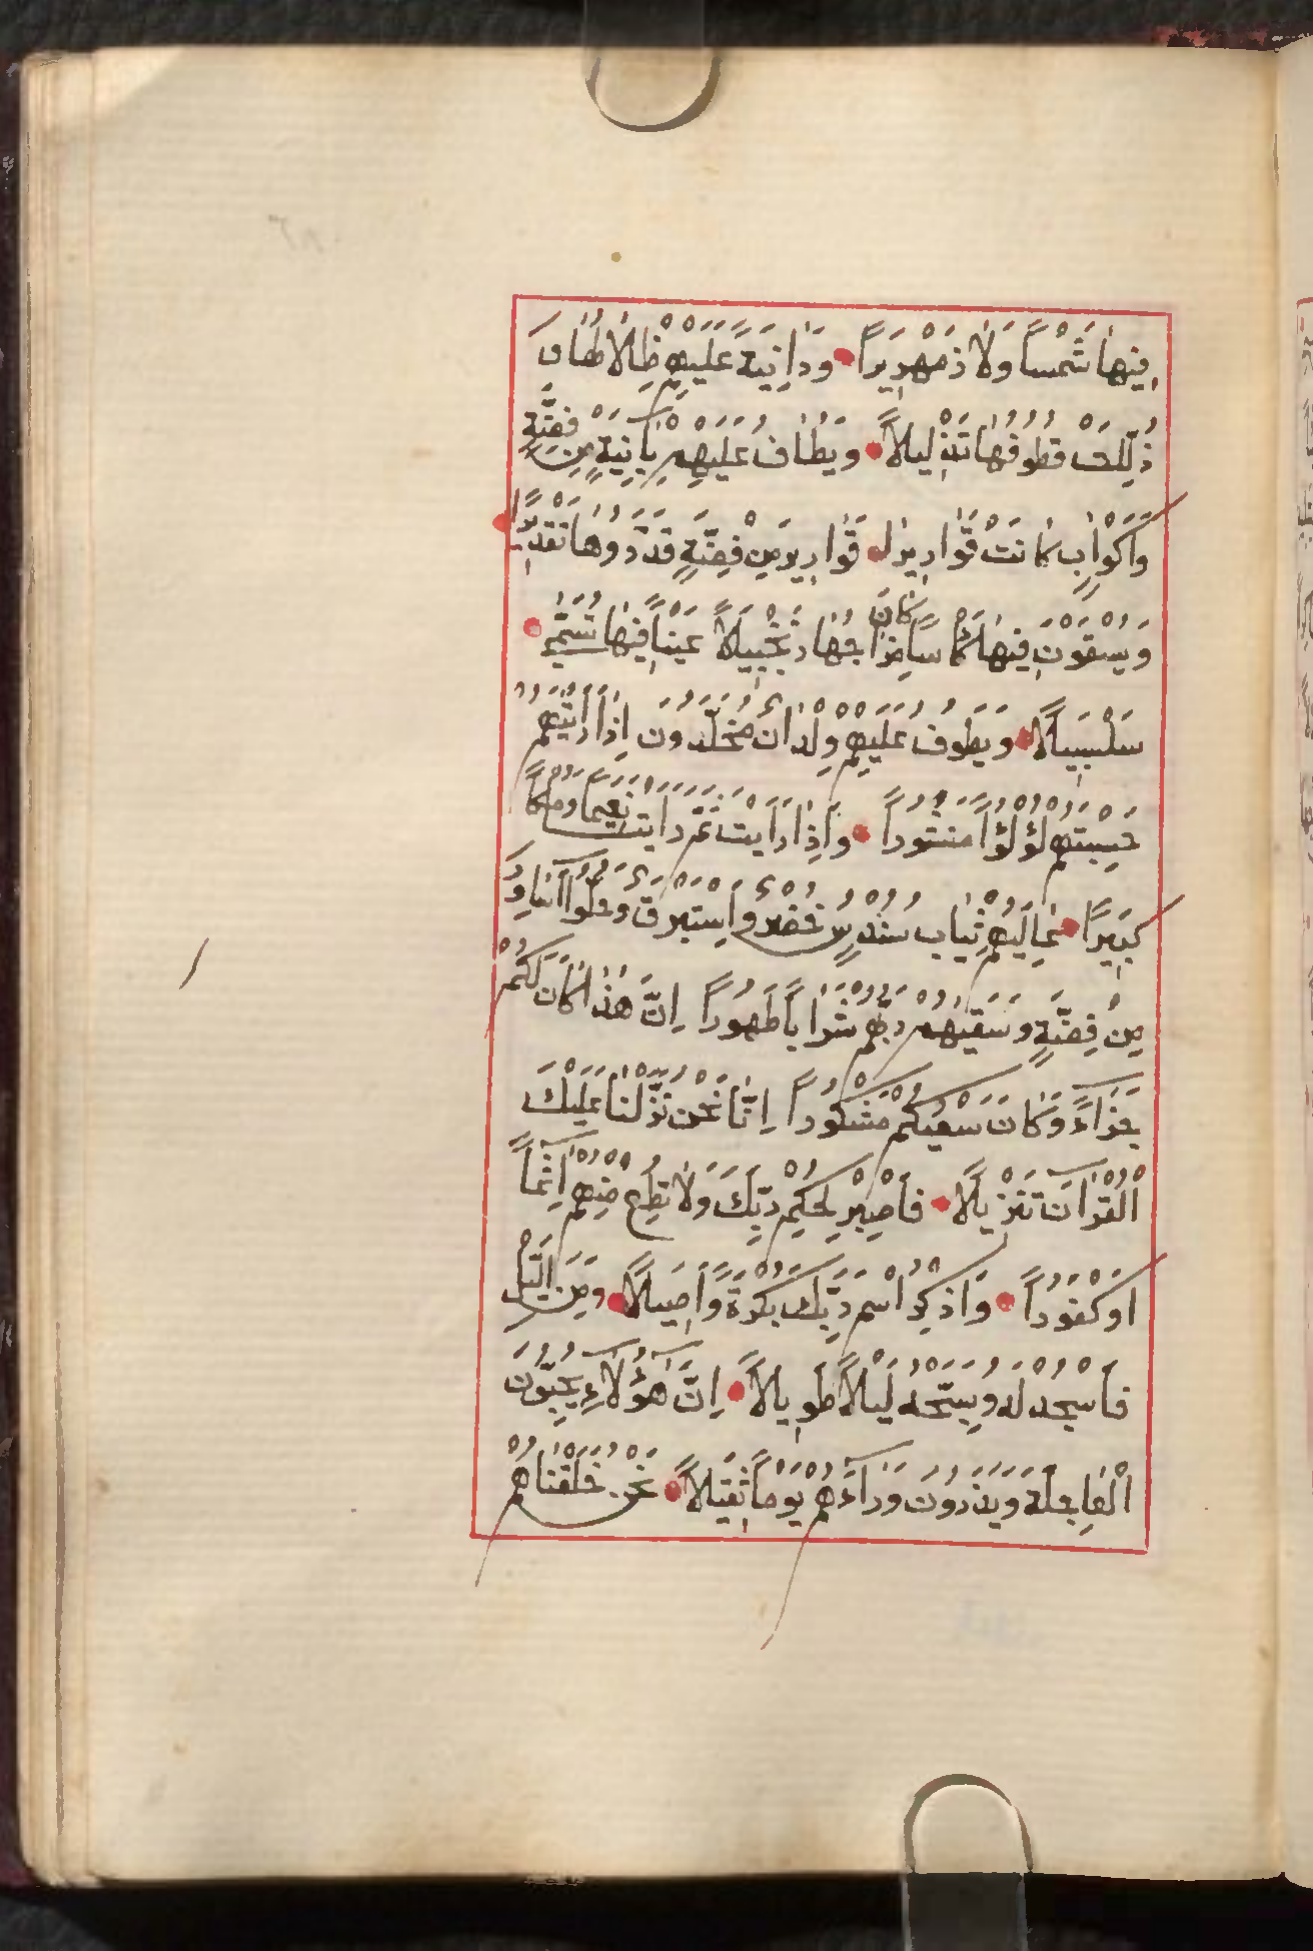 فِيهَا شَمْسًا وَلَا زَمْهَرِيرًا وَدَانِيَةً عَلَيْهِمْ ظِلَالُهَا وَ
ذُلِّلَتْ قُطُوفُهَا تَذْلِيلًا وَيُطَافُ عَلَيْهِمْ بِآنِيَةٍ مِنْ فِضَّةٍ
وَأَكْوَابٍ كَانَتْ قَوَارِيرَا قَوَارِيرَ مِنْ فِضَّةٍ قَدَّرُوهَا تَقْدِيرًا
وَيُسْقَوْنَ فِيهَا كَأْسًا كَانَ مِزَاجُهَا زَنْجَبِيلًا عَيْنًا فِيهَا تُسَمَّى
سَلْسَبِيلًا وَيَطُوفُ عَلَيْهِمْ وِلْدَانٌ مُخَلَّدُونَ إِذَا رَأَيْتَهُمْ
حَسِبْتَهُمْ لُؤْلُؤًا مَنْثُورًا وَإِذَا رَأَيْتَ ثَمَّ رَأَيْتَ نَعِيمًا وَمُلْكًا
كَبِيرًا عَالِيَهُمْ ثِيَابُ سُنْدُسٍ خُضْرٌ وَإِسْتَبْرَقٌ وَحُلُّوا أَسَاوِرَ
مِنْ فِضَّةٍ وَسَقَيهُمْ رَبُّهُمْ شَرَابًا طَهُورًا إِنَّ هَذَا كَانَ لَكُمْ
جَزَآءً وَكَانَ سَعْيُكُمْ مَشْكُورًا إِنَّا نَحْنُ نَزَّلْنَا عَلَيْكَ
الْقُرْآنَ تَنْزِيلًا فَاصْبِرْ لِحُكْمِ رَبِّكَ وَلَا تُطِعْ مِنْهُمْ آثِمًا
أَوْ كَفُورًا وَاذْكُرِ اسْمَ رَبِّكَ بُكْرَةً وَأَصِيلًا وَمِنَ اللَّيْلِ
فَاسْجُدْ لَهُ وَسَبِّحْهُ لَيْلًا طَوِيلًا إِنَّ هَؤُلَآءِ يُحِبُّونَ
الْعَاجِلَةَ وَيَذَرُونَ وَرَآءَهُمْ يَوْمًا ثَقِيلًا نَحْنُ خَلَقْنَاهُمْ